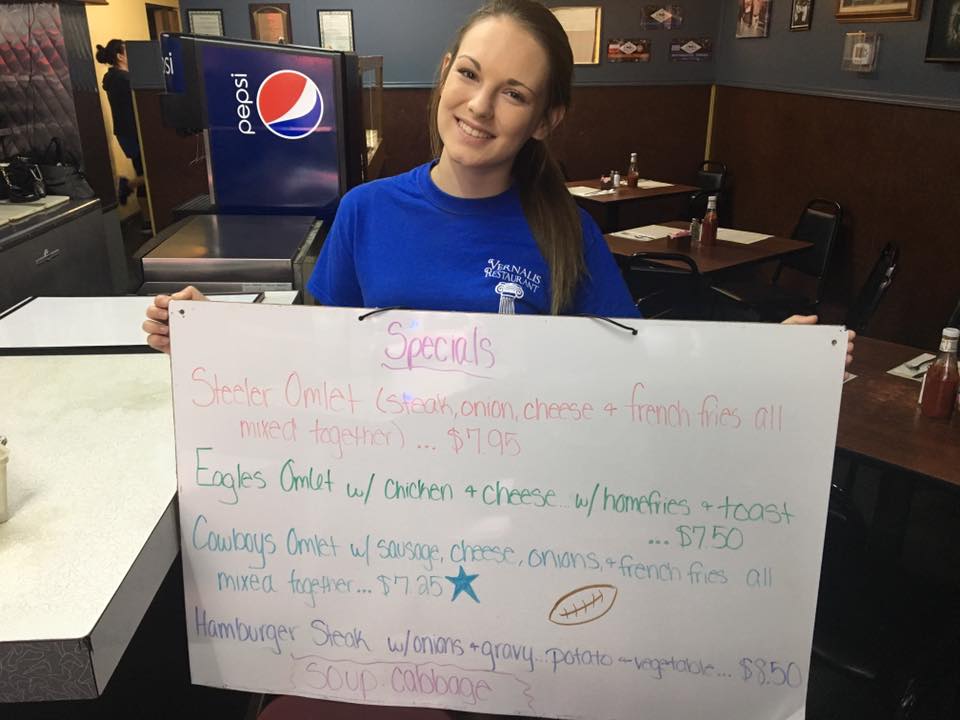 pepsi
si
VERNALIS
RESTAURANT
Specials
Steeler Omlet (steak, onion, cheese + french fries all
mixed together) ... $7.95
Eagles Omlet w/ chicken + cheese... w/ homefries + toast
... $7.50
Cowboys Omlet w/ sausage, cheese, onions, + french fries all
mixed together... $7.25
Hamburger Steak w/onions + gravy... potato + vegetable... $8.50
Soup: cabbage